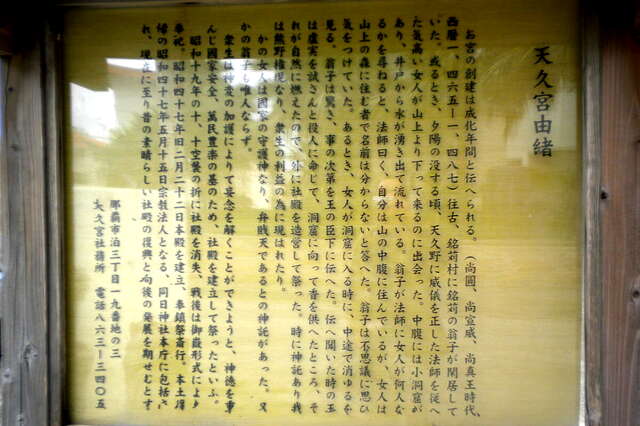 天久宮由緒
お宮の創建は成化年間と伝へられる。（尚圓、尚宣威、尚真王時代、
西暦一、四六五ー一、四八七）往古、銘苅村に銘苅の翁子が閑居して
いた。或るとき、夕陽の没する頃、天久野に威儀を正した法師を従へ
た気高い女人が山上より下って来るのに出会った。中腹には小洞窟が
あり、井戸から水が湧き出て流れている。翁子が法師に女人が何人な
るかを尋ねると、法師曰く、自分は山の中腹に住んでいるが、女人は
山上の森に住む者で名前は分からないと答へた。翁子は不思議に思ひ
気をつけていた。あるとき、女人が洞窟に入る時に、中途で消ゆるを
見る。翁子は驚き、事の次第を王の臣下に伝へた。伝へ聞いた時の王
は虚実を試さんと役人に命じて、洞窟に向って香を供へたところ、そ
れが自然に燃えたので、外に社殿を造営して祭った。時に神託あり我
は熊野権現なり、衆生の利益の為に現はれたり。
かの女人は國家の守護神なり、弁賎天であるとの神託があった。又
かの翁子も唯人ならず。
衆生は神愛の加護によりて妄念を解くことができようと、神徳を重
んじ國家安全、萬民豊楽の基のため、社殿を建立して祭ったといふ。
昭和十九年の十、十空襲の折に社殿を消失、戦後は御嶽形式により
奉祀。昭和四十七年旧二月二十二日本殿を建立、奉鎮祭斎行、本土復
帰の昭和四十七年五月十五日宗教法人となる、同日神社本庁に包括さ
れ、現在に至り昔の素晴らしい社殿の復興と向後の発展を期せむとす
那覇市泊三丁目一九番地の三
天久宮社務所　電話八六三ー三四〇五